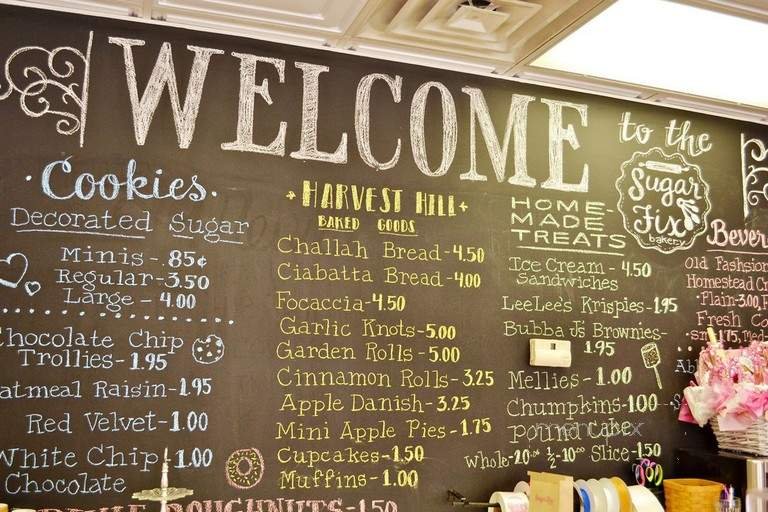 WELCOME
to the
Sugar
Fix
bakery
Cookies
Decorated Sugar
Minis - .85¢
Regular - 3.50
Large - 4.00
Chocolate Chip
Trollies - 1.95
Oatmeal Raisin - 1.95
Red Velvet - 1.00
White Chip
Chocolate
1.00
HARVEST HILL
BAKED GOODS
Challah Bread - 4.50
Ciabatta Bread - 4.00
Focaccia - 4.50
Garlic Knots - 5.00
Garden Rolls - 5.00
Cinnamon Rolls - 3.25
Apple Danish - 3.25
Mini Apple Pies - 1.75
Cupcakes - 1.50
Muffins - 1.00
DOUGHNUTS - 1.50
HOME-
MADE
TREATS
Ice Cream - 4.50
Sandwiches
LeeLee's Krispies - 1.95
Bubba J's Brownies -
1.95
Mellies - 1.00
Chumpkins - 1.00
Pound Cake
Whole - 20.00 ½ - 10.00 Slice - 1.50
Bever
Old Fashion
Homestead Cr
Plain - 3.00, F
Fresh Co
sm 1.75, Med